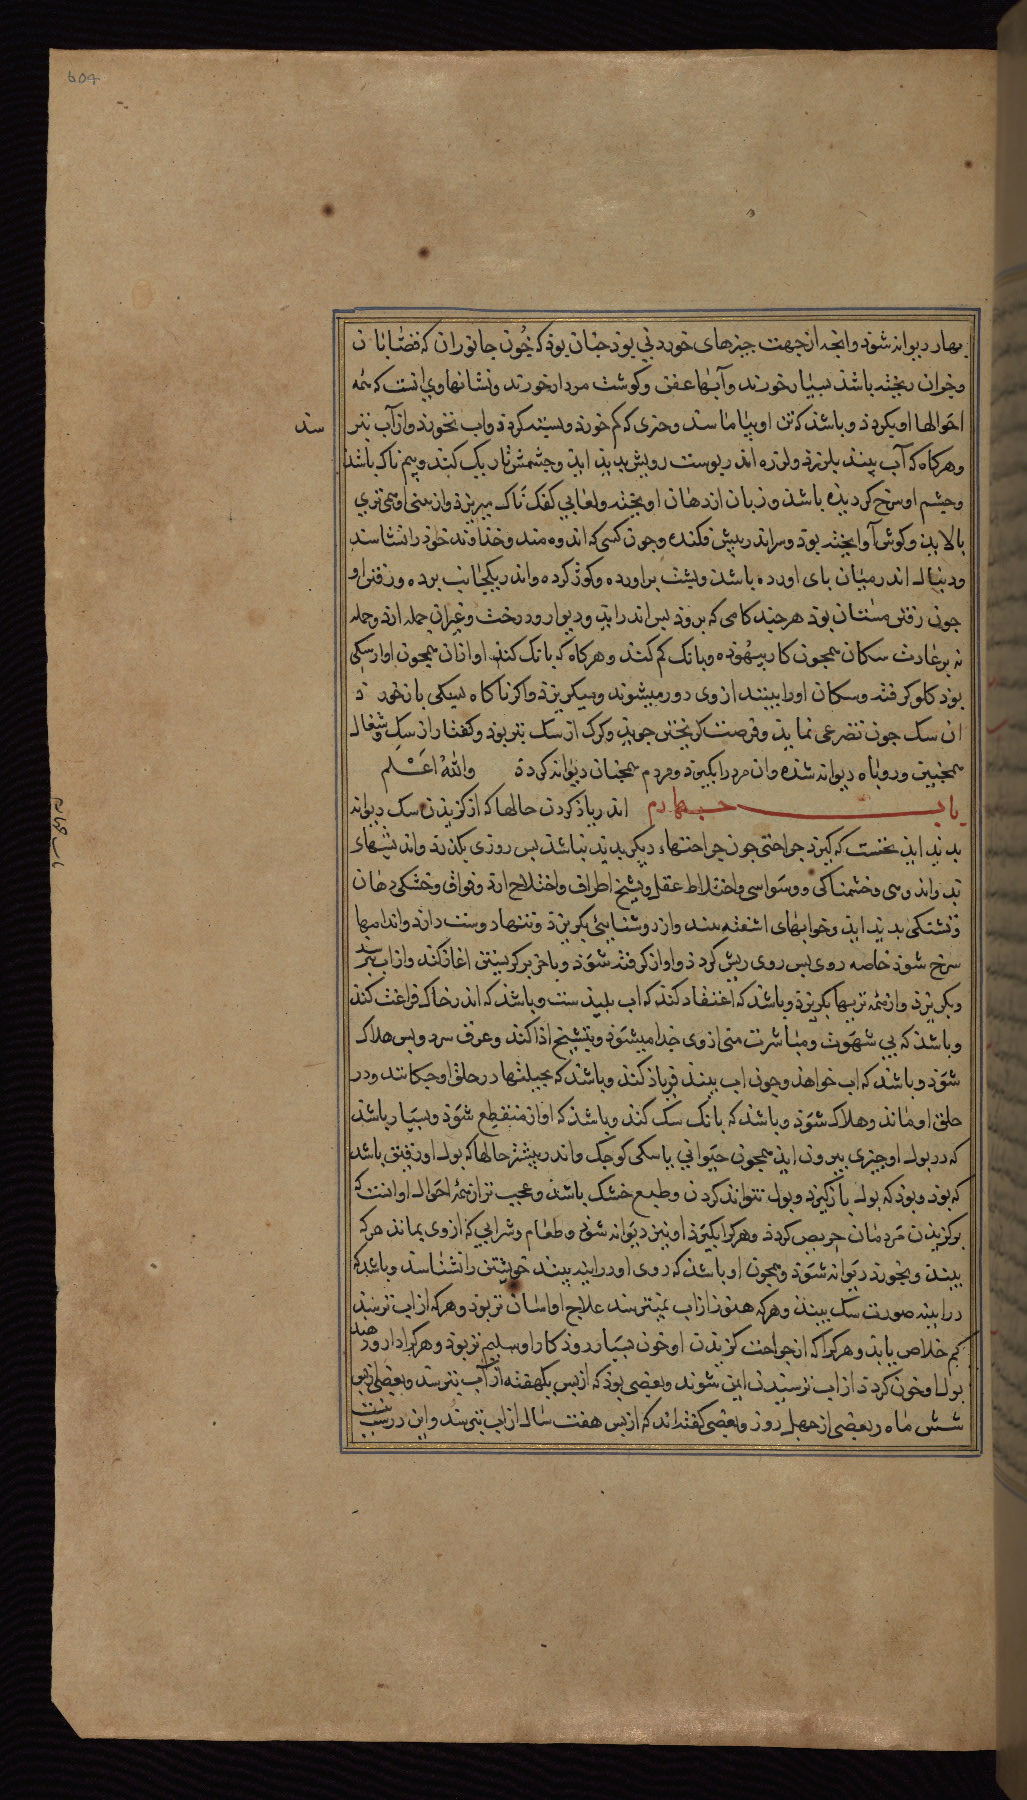 بهار دیوانه شوذ وانچه از جهت چیزهای خوردنی بوذ جنان بوذ که خون جانوران که قصابان
وجزان ریخته باشذ بسیار خورند وآبها عفن وکوشت مردار خورند ونشانهاوی انست که همه
احوالها او بکردذ وباشذ که تن او بیاماسد وچیزی که کم خورذ وبسته کردذ واب نخورذ واز آب بترسد
وهرکاه که آب بیند بلرزذ ولرزه اندر پوست رویش پدید ایذ وچشمش تاریک کند وبیم ناک باشذ
وچشم او سرخ کردیذه باشذ وزبان از دهان اویخته ولعابی کفک ناک میریزذ واز بینی او همی تری
بالاید وکوش آویخته بوذ وسر اندر پیش فکنده وجون کسی که اندوه مند وخذاوند خوذ را نشناسد
ودنبال اندر میان پای اورده باشذ وپشت براورده وکوژ کرده واندر یکجانب برده ورفتن او
جون رفتن مستان بوذ هر چند کامی که بروذ بسر اندر ایذ وبدیوار ودرخت وغیران حمله ارذ وحمله
نه بر عادت سکان همجون کار بیهوذه وبانک کم کند وهرکاه که بانک کند اواز ان همجون اواز سکی
بوذ کلو کرفته وسکان اورا ببینند از وی دور میشوند ومیکریزند واکر ناکاه بسکی باز خورد
ان سک جون تضرعی نمایذ وفرصت کریختن جویذ وکرک از سک بتر بوذ وکفتار از سک وشغال
همچنین وروباه دیوانه شذه وان مرد را بکیرذ ومردم همچنان دیوانه کردد والله اعلم
باب چهارم اندر یاذ کردن حالها که از کزیدن سک دیوانه
پدید ایذ نخست که کیرد جراحتی جون جراحتهاء دیکر پدید نباشذ پس روزی بکذرذ واندیشهای
بد واندوهی وخشمناکی ووسواسی واختلاط عقل وتشنج اطراف واختلاج ارذ وفواق وخشکی دهان
وتشنکی پدید ایذ وخوابهای اشفته بیند واز روشنایی بکریزذ وتنهاء دوست دارد واندامها
سرخ شوذ خاصه روی پس روی ریش کردذ واواز کرفته شوذ وباخر بر کریستن اغاز کند واز اب بترسد
وبکریزذ واز همه تریها بکریزذ وباشذ که اعتقاد کند که اب پلیذ ست وباشذ که اندر خاک مراغت کند
وباشذ که بی شهوت ومباشرت منی از وی جذا میشوذ وتشنج اذا کند وعرق سرد وپس هلاک
شوذ وباشذ که اب خواهذ وجون اب بیند فریاذ کند وباشذ که بحیلتها در حلق او چکانند ودر
حلق او ماند وهلاک شوذ وباشذ که بانک سک کند وباشذ که اواز منقطع شوذ وبسیار باشذ
که در بول او چیزی بیرون ایذ همجون حیوانی یا سکی کوچک واندر بیشتر حالها که بول او رقیق باشذ
که بوذ وبوذ که بول باز کیرذ وبول نتواند کردن وطبع خشک باشذ وعجب تر از همه احوال او انست که
بر کزیدن مردمان حریص کردد وهر کرا بکیرذ او نیز دیوانه شوذ وطعام وشرابی که از وی بماند هر که
بیند وبخورذ دیوانه شوذ وهمجون او باشذ که روی او در اینه بیند خویشتن را نشناسد وباشذ که
در اینه صورت سک بیند وهرکه هنوز از اب نمیترسد علاج او اسان تر بوذ وهرکه از اب ترسد
کم خلاص یابد وهر کرا که از جراحت کزیدن او خون بسیار رود کار او سلیم تر بوذ وهر کرا دارو دهند
بول او خون کردد از اب ترسیدن ایمن شوند وبعضی بوذ که از پس یکهفته از آب بترسد وبعضی از پس
شش ماه وبعضی از چهل روز وبعضی کفته‌اند که از پس هفت سال از اب بترسند واین درست نیست
باب چهارم